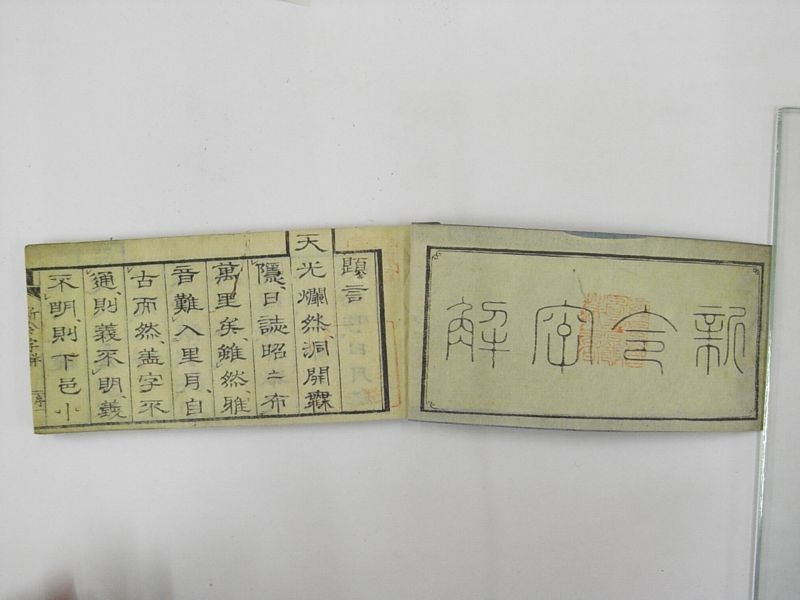 新令字解
題言
天光爛然洞開無
隱日誌昭々布
萬里矣雖然雅
音難入里耳自
古而然蓋字不
通則義不明義
不明則下邑小
新令字解